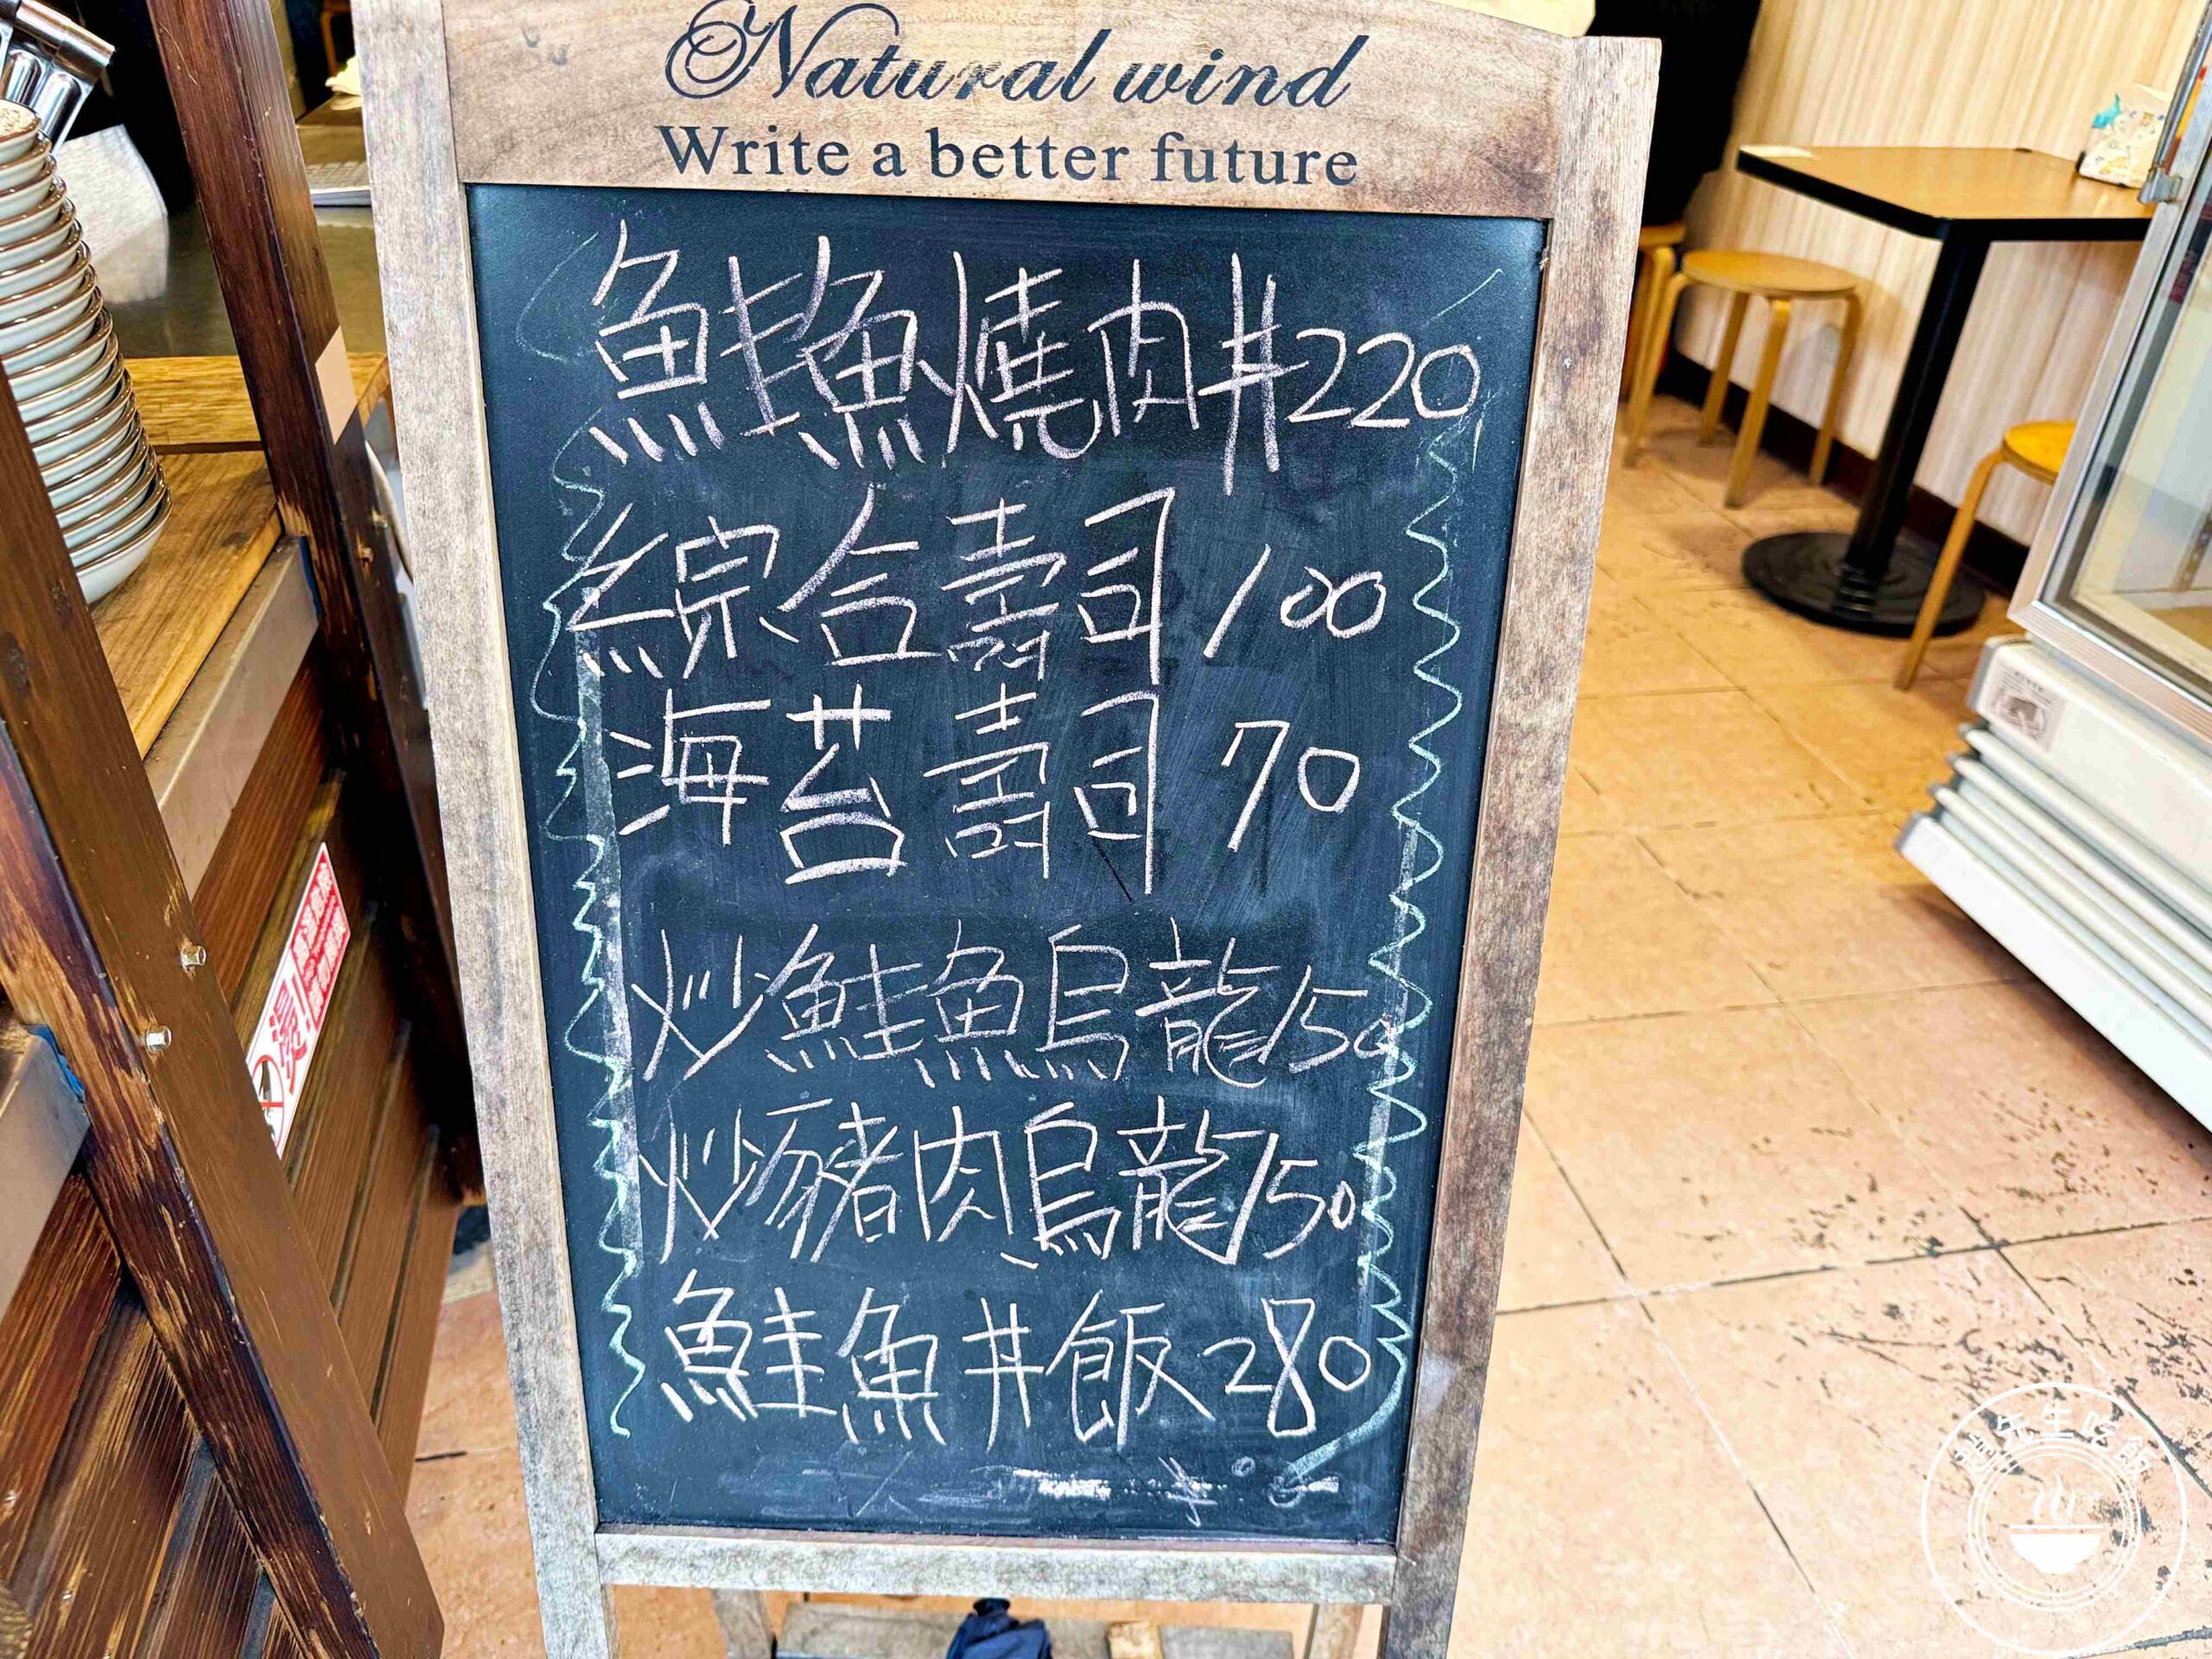 Natural wind
Write a better future
鮭魚燒肉丼220
綜合壽司 100
海苔壽司 70
炒鮭魚烏龍150
炒豬肉烏龍150
鮭魚丼飯 280